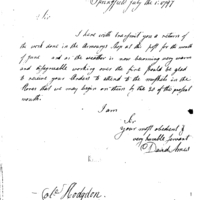 Springfield July the 1. 1797
Sir
I here with transmit you a return of
the work done in the Armourers Shop at this post for the month
of June and as the weather is now becoming very warm
and disagreeable working over the fires should be glad
to receive your orders to attend to the muskets in the
Stores that we may begin on them by the 20 of the present
month.
I am
Sir
your most obedient &
very humble Servant
David Ames
Colo. Hodgdon.